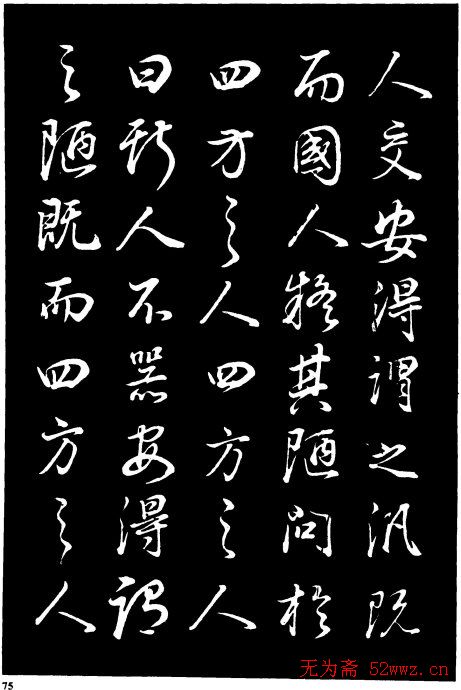 人交安得謂之汎既
而國人疑其陋問於
四方之人四方之人
曰斯人不器安得謂
之陋既而四方之人
无为斋 52wwz.cn
75